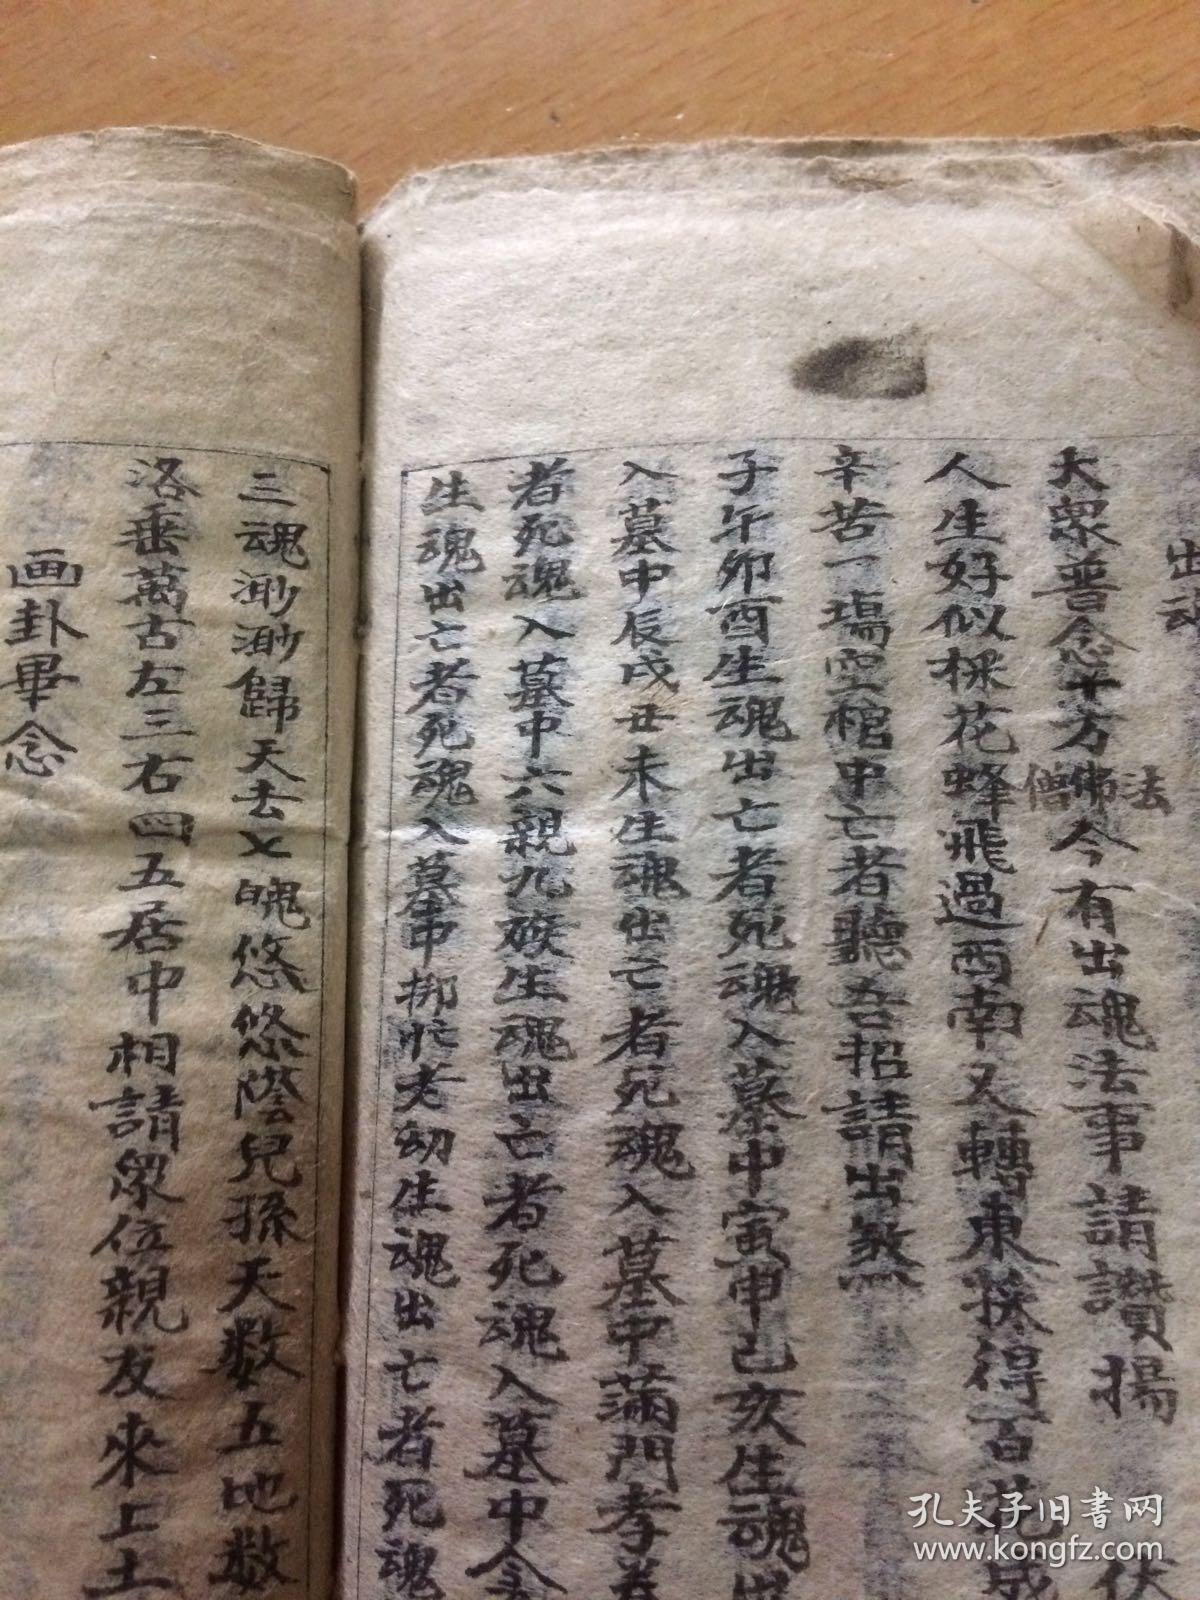 出魂
大衆普念十方佛今有出魂法事請讃揚 伏
僧 法
人生好似採花蜂飛過西南又轉東採得百花成
辛苦一塲空棺中亡者聽吾招請出煞
子午卯酉生魂出亡者死魂入墓中寅申巳亥生魂出
入墓中辰戌丑未生魂出亡者死魂入墓中滿門孝眷
者死魂入墓中六親九族生魂出亡者死魂入墓中
生魂出亡者死魂入墓中挷忙老幼生魂出亡者死魂
三魂渺渺歸天去七魄悠悠蔭兒孫天数五地数
洛垂萬古左三右四五居中相請眾位親友來上土
画卦畢念
孔夫子旧書网
www.kongfz.com